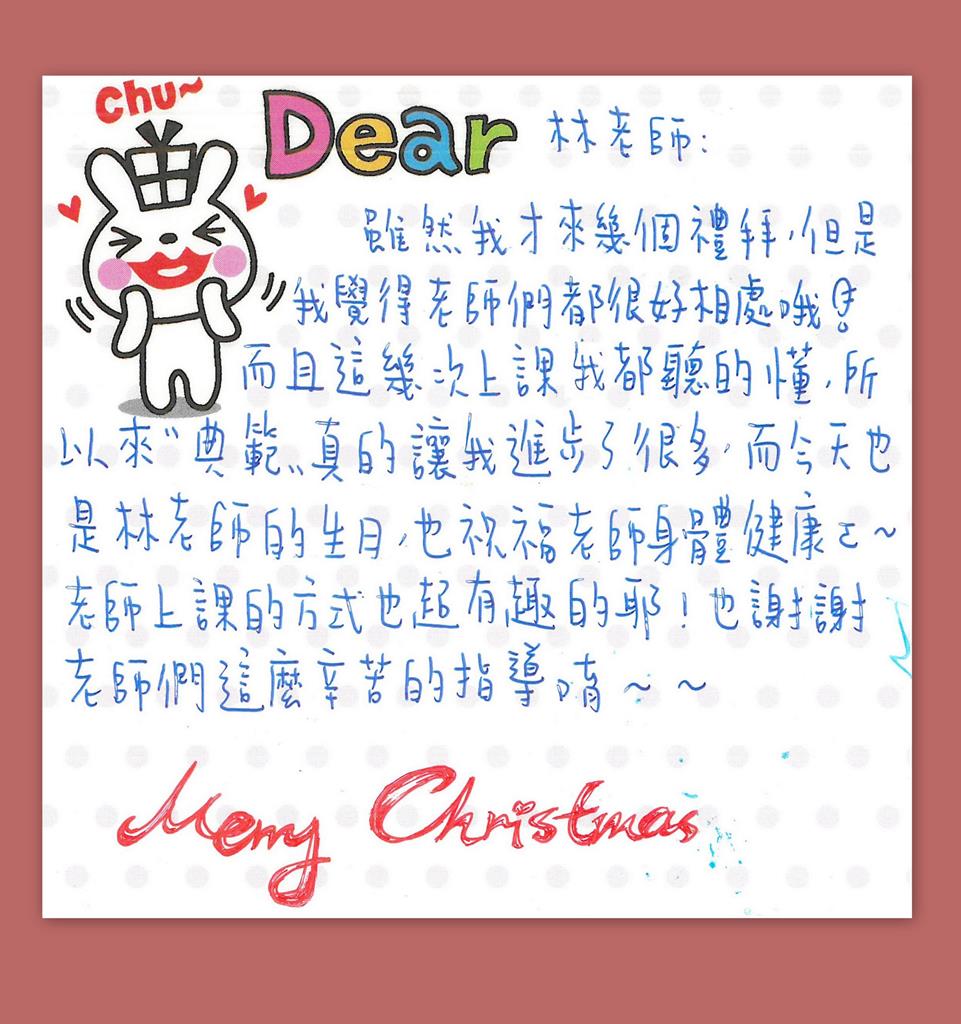 chu~
Dear 林老師:
雖然我才來幾個禮拜,但是
我覺得老師們都很好相處哦!
而且這幾次上課我都聽的懂,所
以來"典範"真的讓我進步了很多,而今天也
是林老師的生日,也祝福老師身體健康ㄛ~
老師上課的方式也超有趣的耶!也謝謝
老師們這麼辛苦的指導唷~~
Merry Christmas